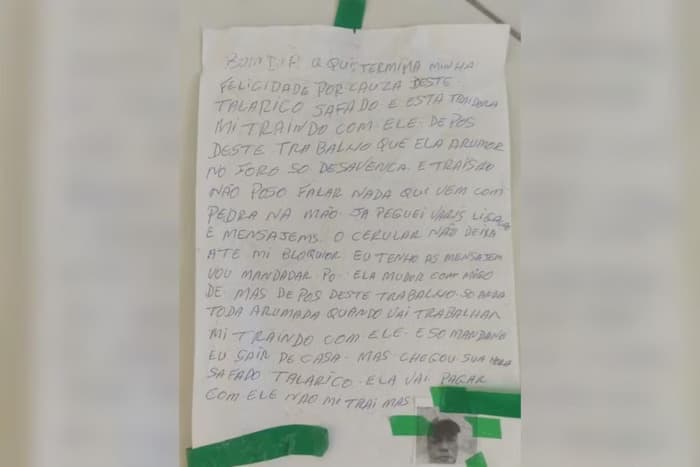 BOM DIA A QUI TERMIMA MINHA
FELICIDADE POR CAUZA DESTE
TALARICO SAFADO E ESTA TRAIDORA
MI TRAINDO COM ELE. DEPOS
DESTE TRABALHO QUE ELA ARUMOR
NO FORO SO DESAVENCA. E TRAISÃO
NÃO POSO FALAR NADA QUI VEM COM
PEDRA NA MÃO. JA PEGUEI VARIS
E MENSAJEMS. O CERULAR NÃO DEIXA
ATE MI BLOQUIOR. EU TENHO AS MENSAJEM
VOU MANDADAR PO. ELA MUDOR COM MIGO
DE MAS DEPOS DESTE TRABALHO. SO ANDA
TODA ARUMADA QUANDO VAI TRABALHAR
MI TRAINDO COM ELE. E SO MANDANO
EU SAIR DE CASA. MAS CHEGOU SUA HORA
SAFADO TALARICO. ELA VAI PAGAR
COM ELE NÃO MI TRAI MAS